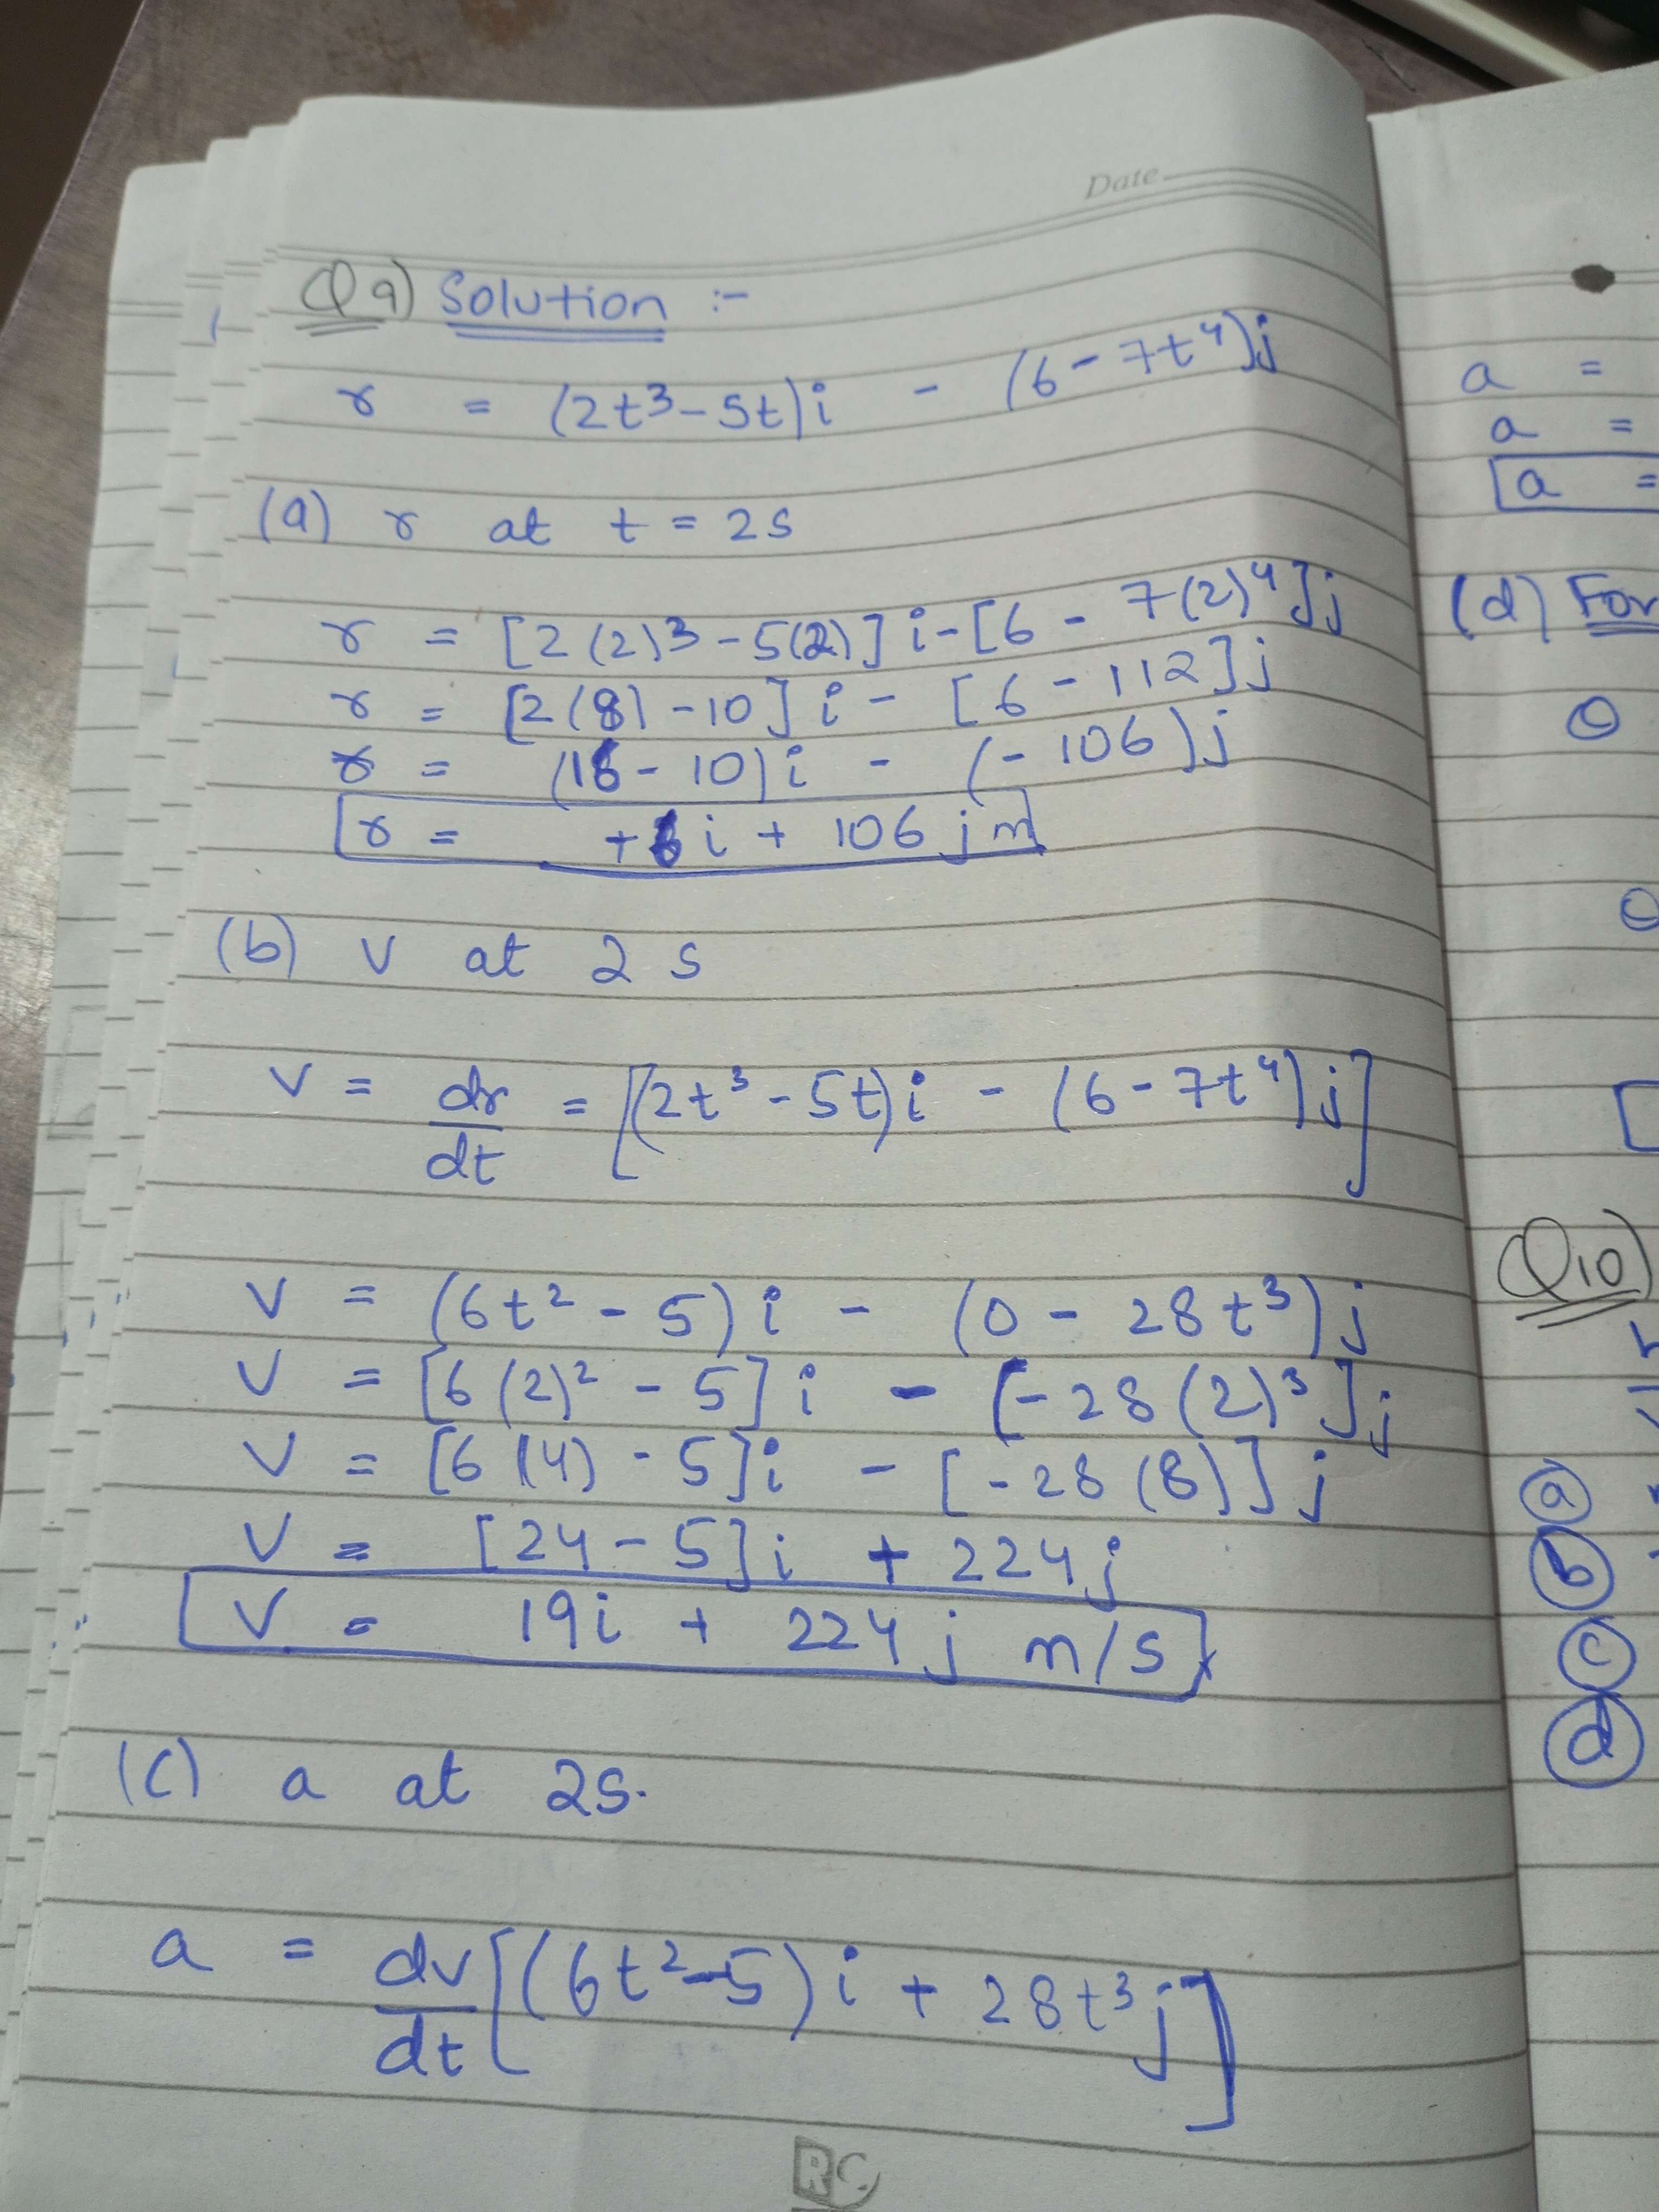 Date
Q9) Solution :-
r = (2t³-5t)i - (6-7t⁴)j
(a) r at t = 2s
r = [2(2)3-5(2)]i-[6-7(2)⁴]j
r = [2(8)-10]i-[6-112]j
r = (16-10)i - (-106)j
r = +6i + 106 j m
(b) v at 2 s
v = dr/dt = [(2t³-5t)i - (6-7t⁴)j]
v = (6t²-5)i - (0-28t³)j
v = [6(2)²-5]i - [-28(2)³]j
v = [6(4)-5]i - [-28(8)]j
v = [24-5]i + 224j
v = 19i + 224j m/s
(c) a at 2s.
a = dv/dt [(6t²-5)i + 28t³j]
RC
a =
a =
a =
(d) For
Q10)
a
b
c
d